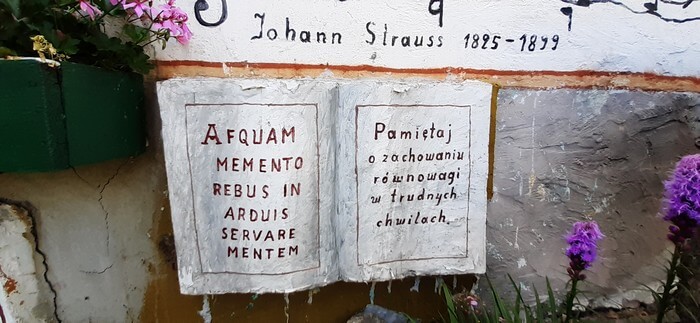 Johann Strauss 1825-1899
AFQUAM
MEMENTO
REBUS IN
ARDUIS
SERVARE
MENTEM
Pamiętaj
o zachowaniu
równowagi
w trudnych
chwilach.